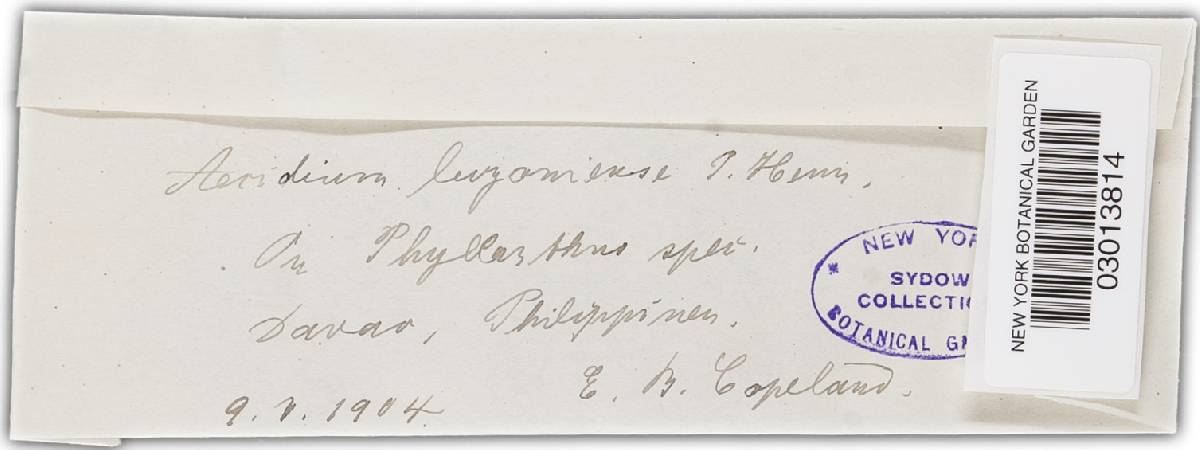 Aecidium luzoniense P. Henn.
On Phyllanthus spec.
Davao, Philippinen.
E. B. Copeland.
9. V. 1904.
NEW YOR
SYDOW
COLLECTIO
BOTANICAL GA
NEW YORK BOTANICAL GARDEN
03013814